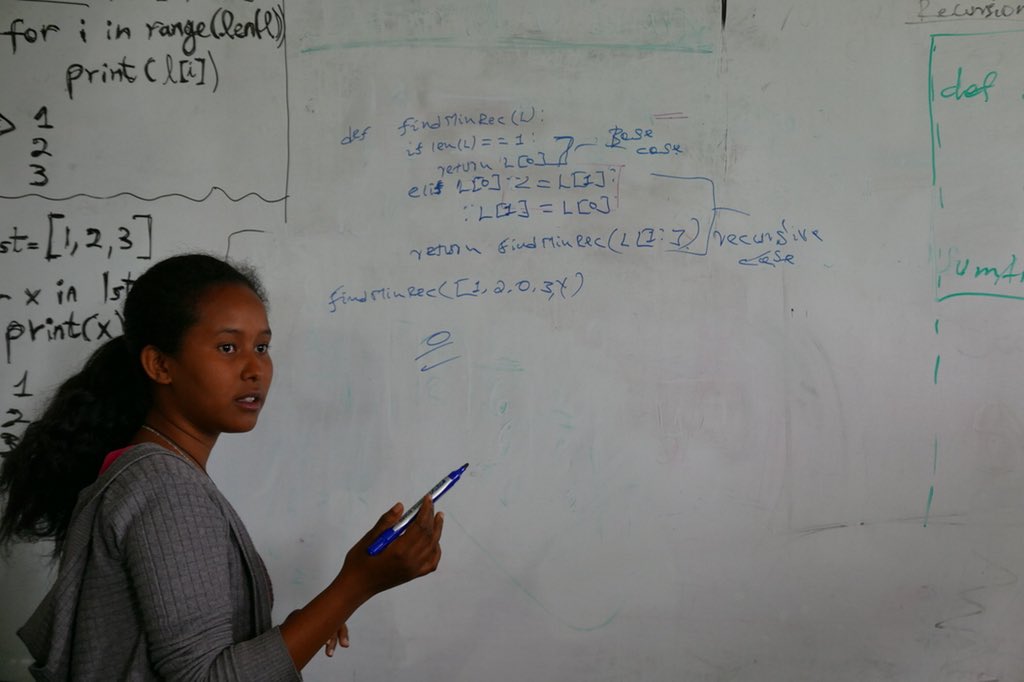 for i in range(len(l))
print(l[i])
1
2
3
st=[1,2,3]
x in lst
print(x)
1
2
def findMinRec(L):
if len(L)==1:
return L[0]
Base case
elif L[0] <= L[1]:
L[1] = L[0]
return findMinRec(L[1:])
recursive case
findMinRec([1,2,0,3,4)
0
Recursion
def